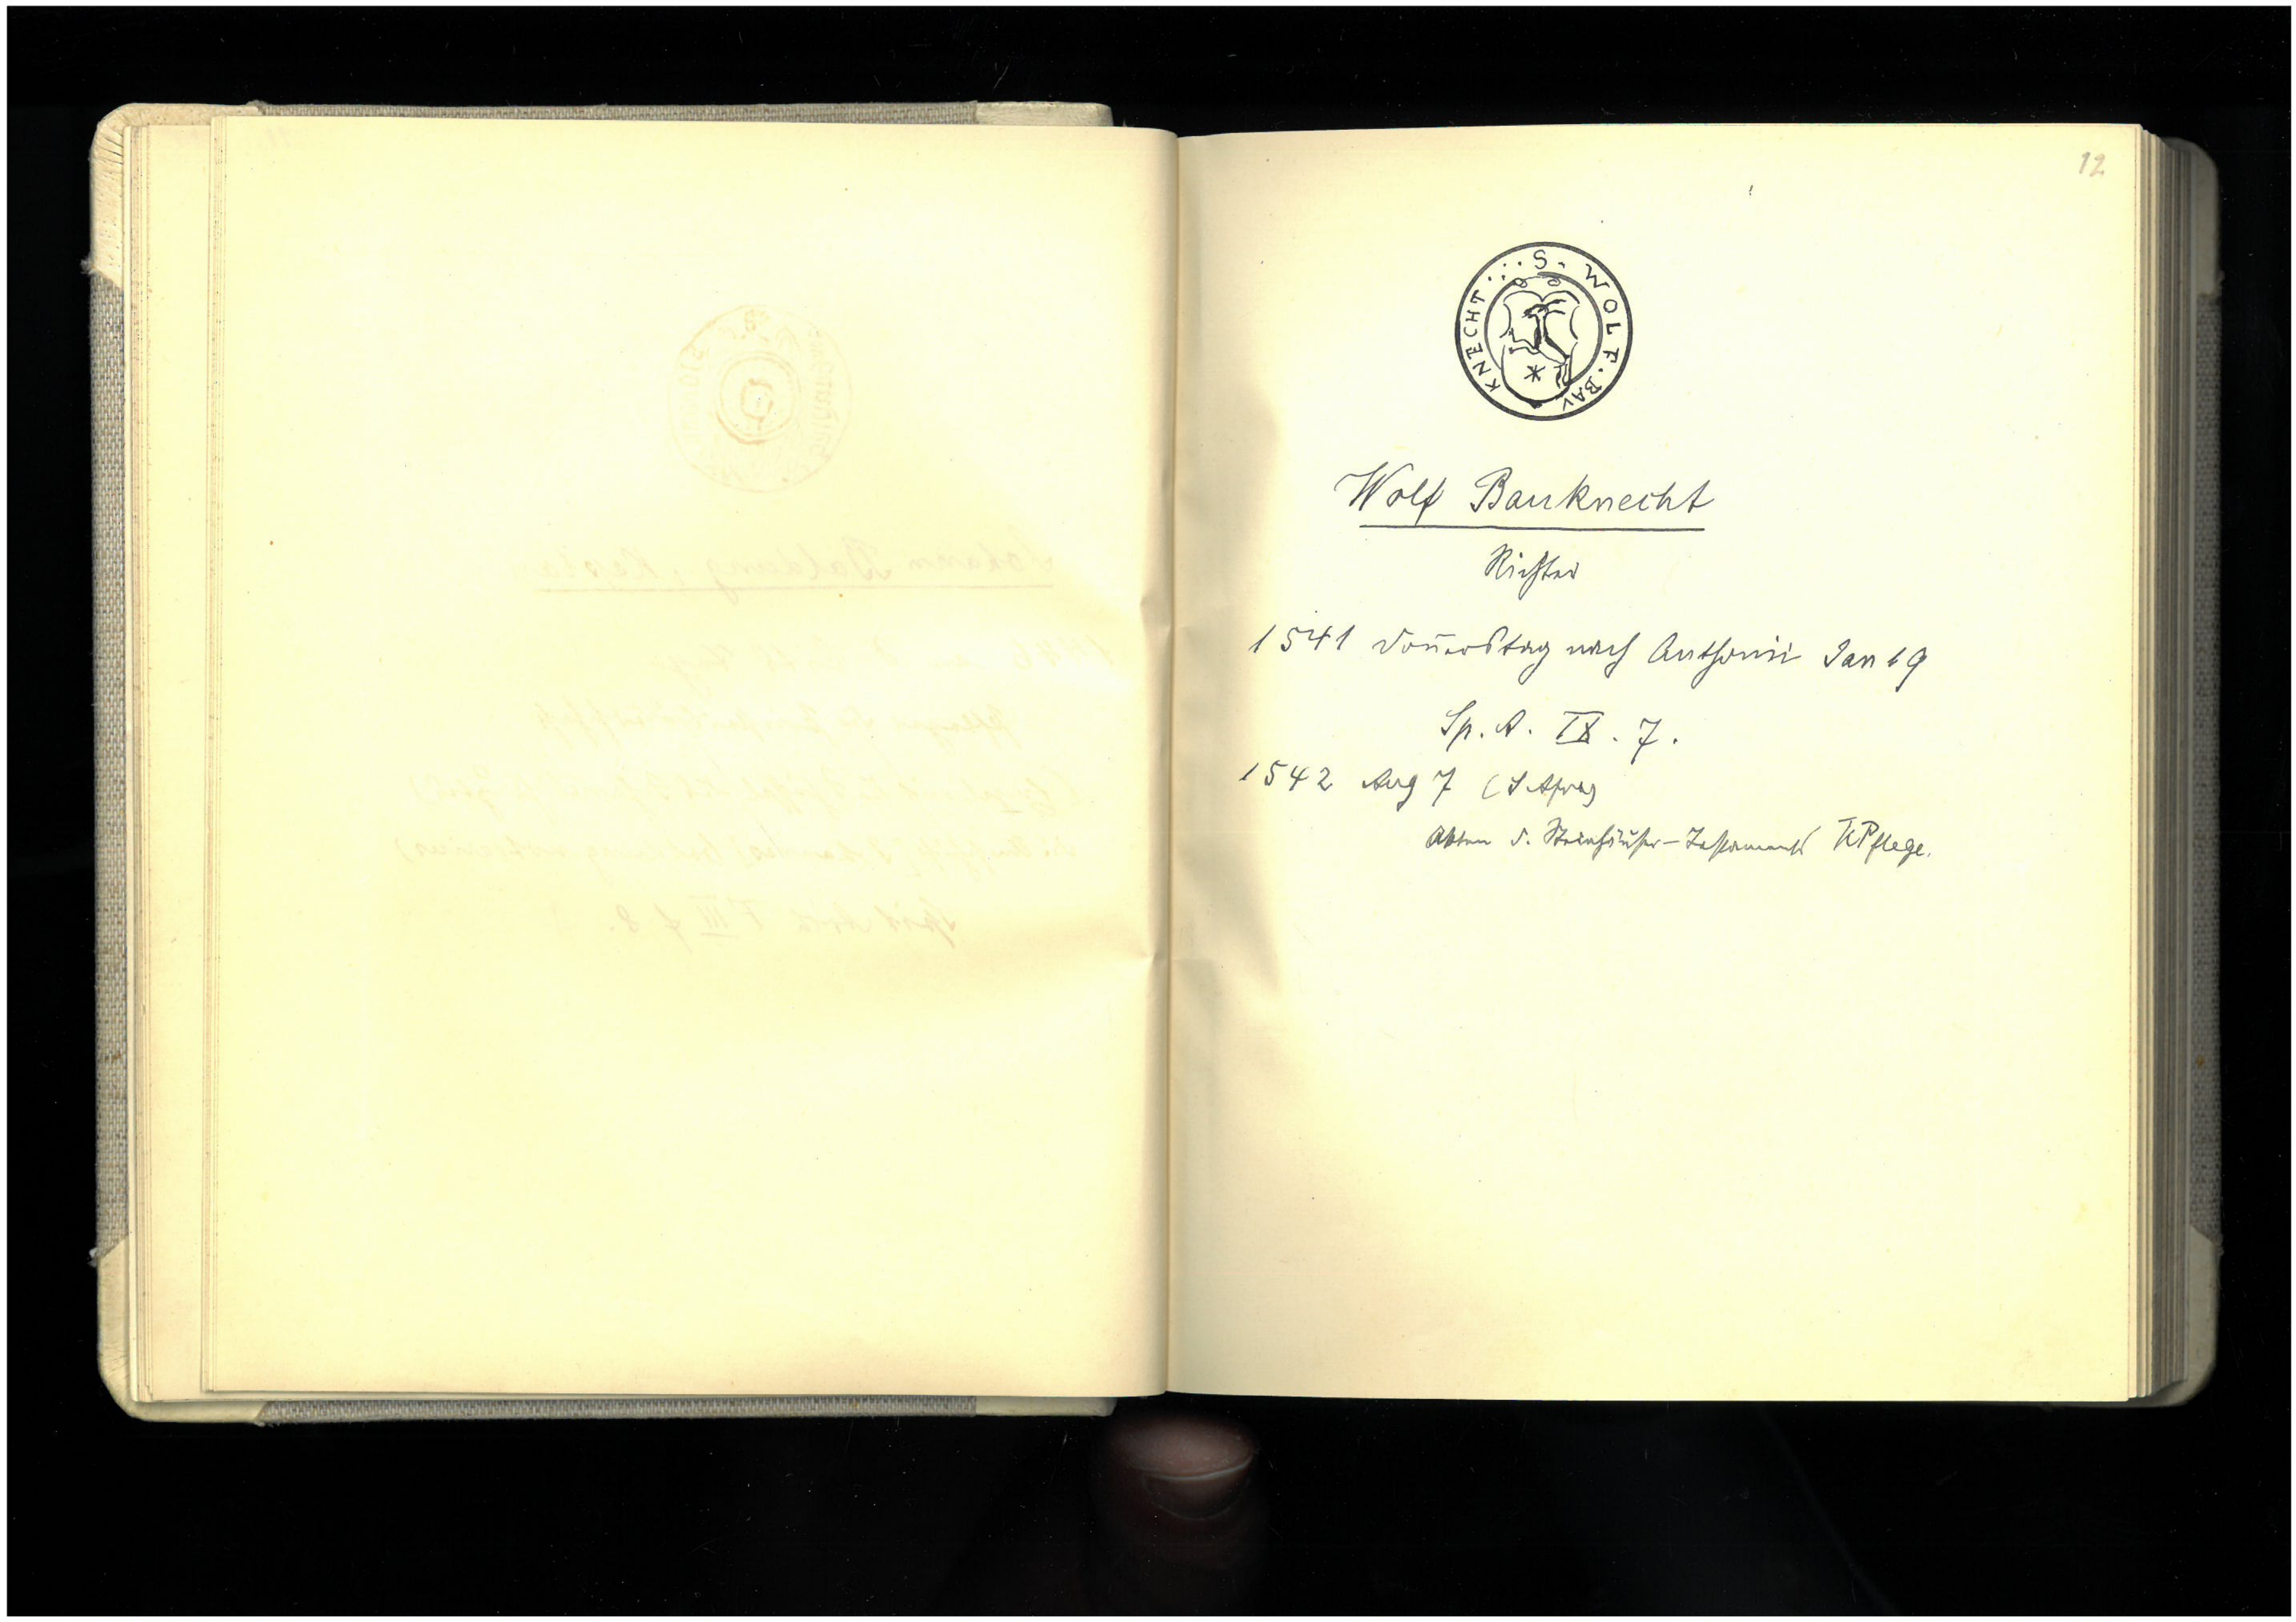 12
S. WOLF. BAV KNECHT
Wolf Bauknecht
Richter
1541 Donnerstag nach Anthonii Jan 19
Sp. A. IX. 7.
1542 Aug 7 (S Afra)
Akten d. Steinhäuser-Testaments KPflege.